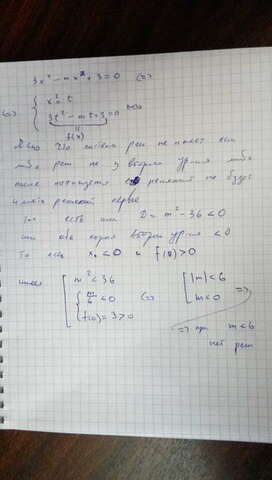 3x⁴ - mx² + 3 = 0 (=>
(=> { x² = t
3t² - mt + 3 = 0 (=>
f(x)
Ясно что система реш не имеет если
либо реш не у второго ур-ия либо
после решений не будет
решений первое
То есть или D = m² - 36 < 0
или оба корня второго ур-ия < 0
То есть x₀ < 0 и f(0) > 0
имеем [ m² < 36
{ m/6 < 0
f(0) = 3 > 0
(=> [ |m| < 6
m < 0 =>
=> при m < 6
нет реш